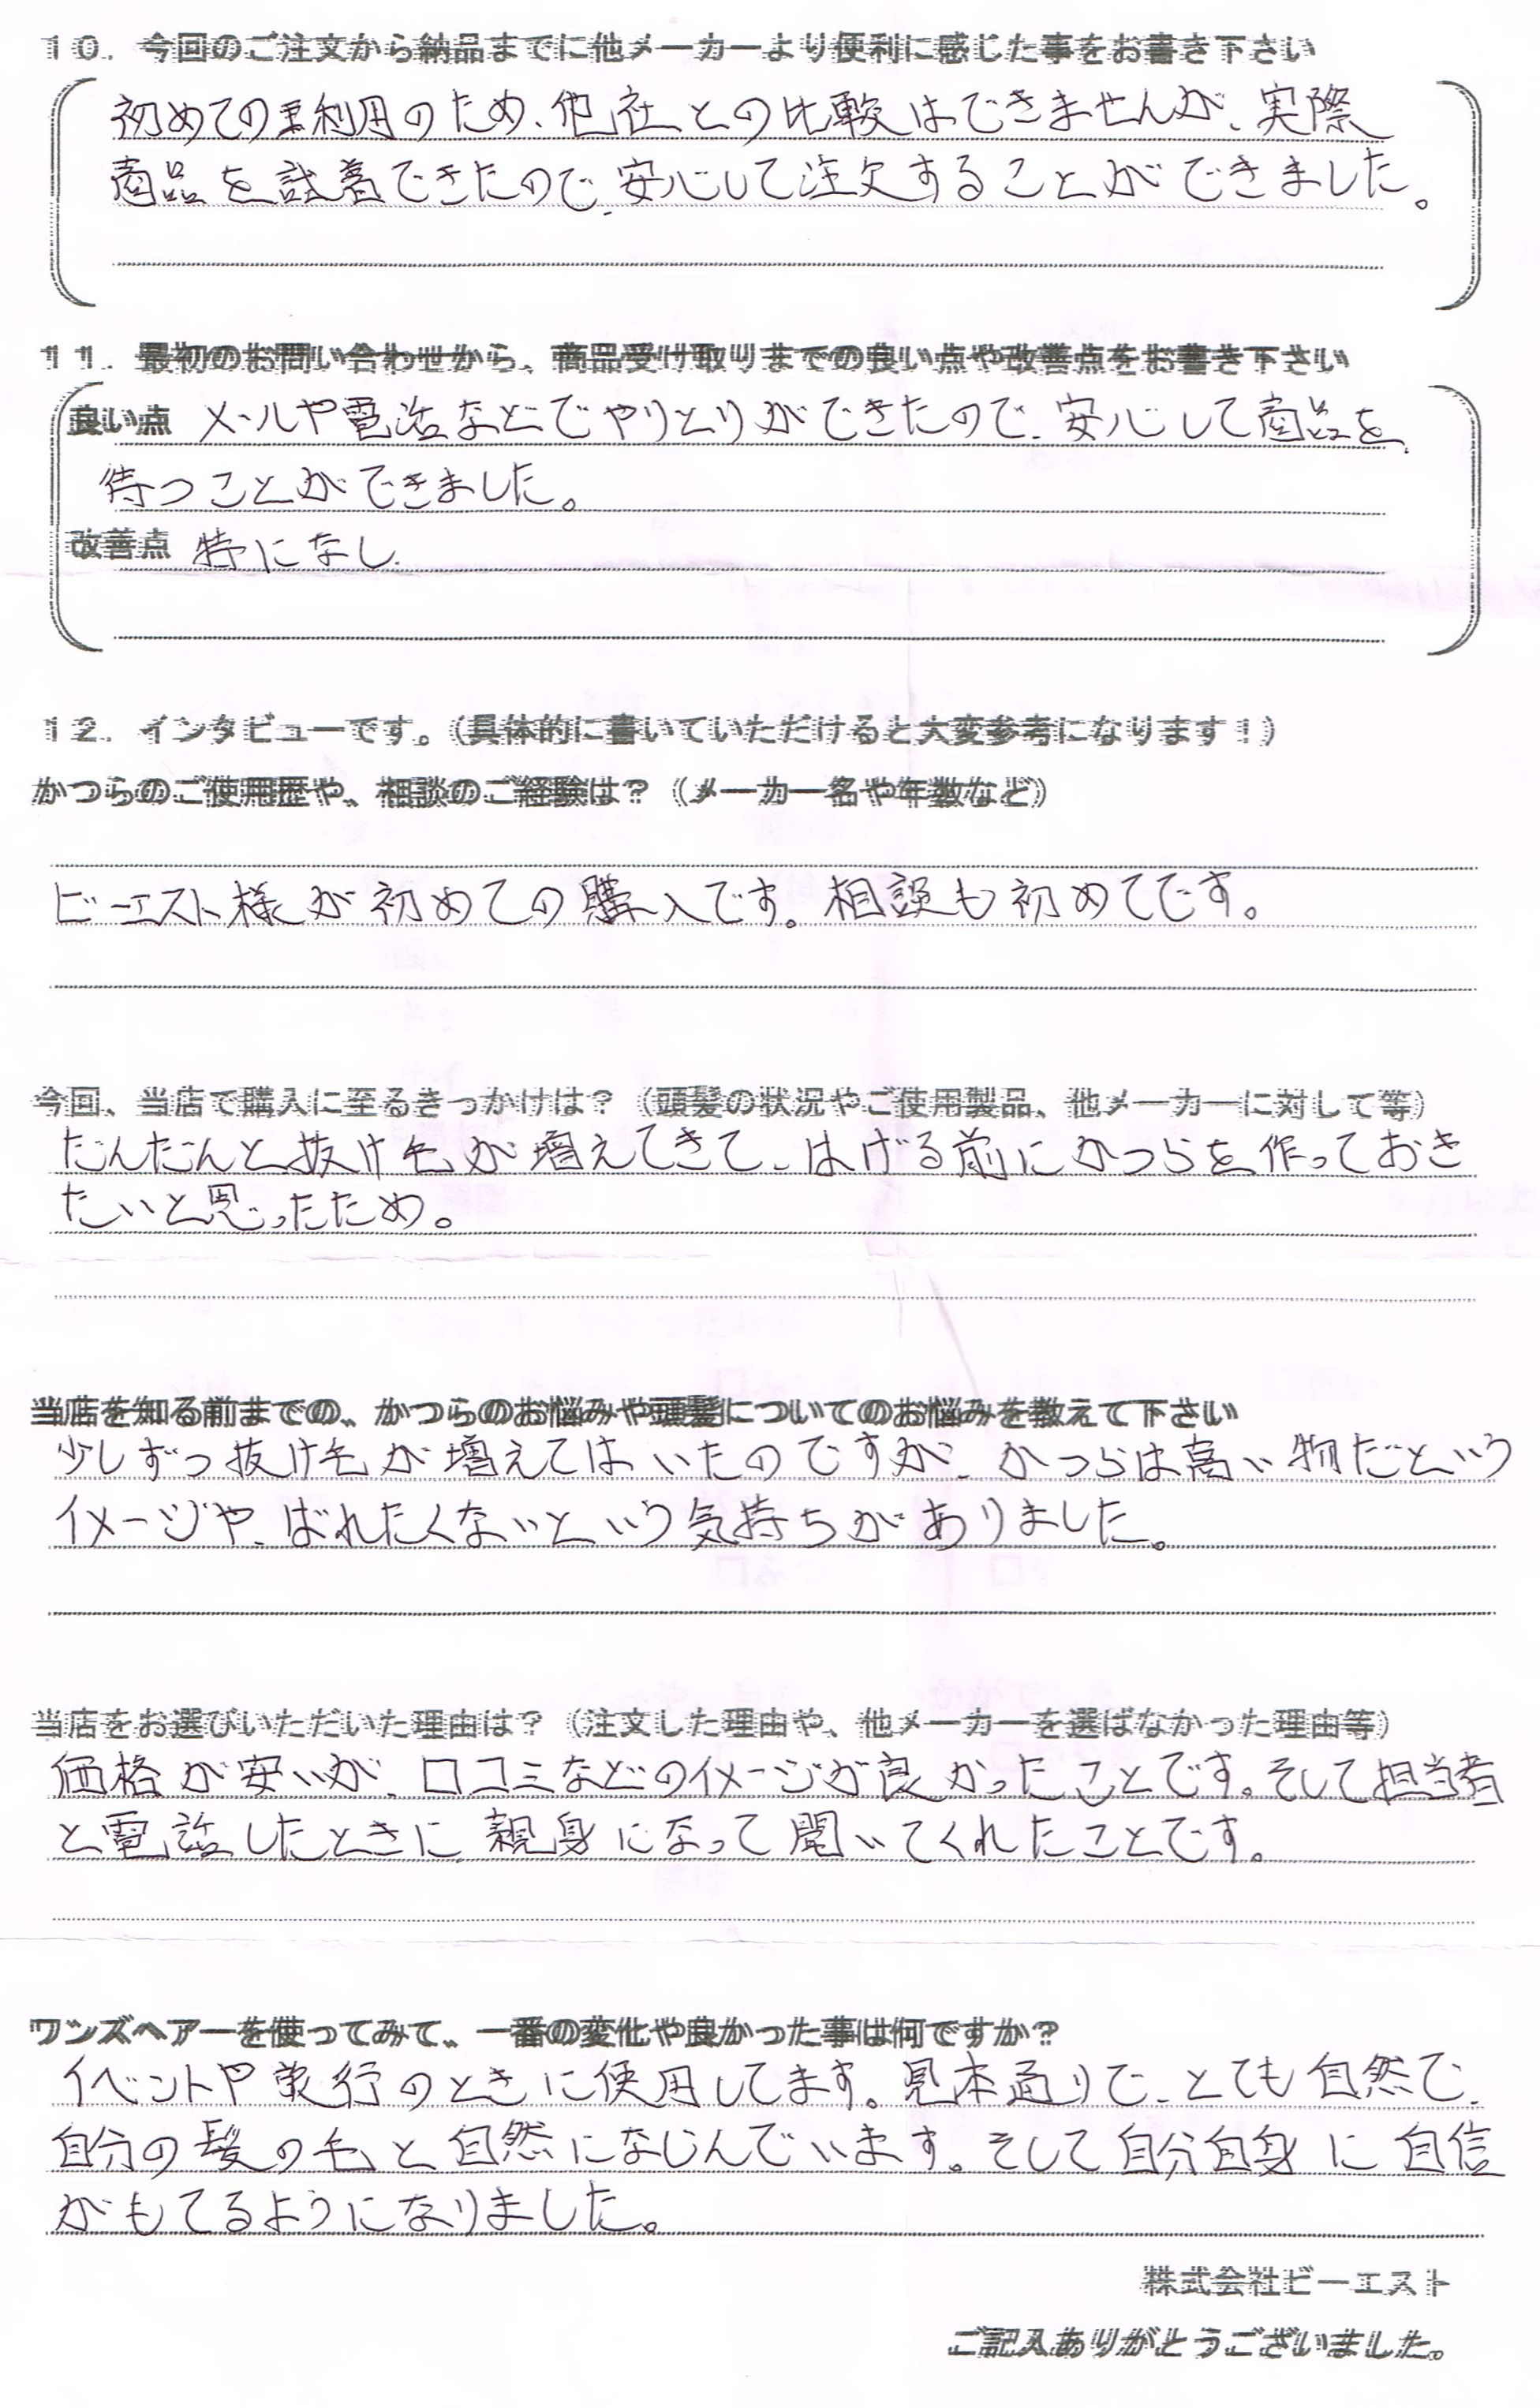 １０．今回のご注文から納品までに他メーカーより便利に感じた事をお書き下さい
初めての利用のため、他社との比較はできませんが、実際
商品を試着できたので、安心して注文することができました。
１１．最初のお問い合わせから、商品受け取りまでの良い点や改善点をお書き下さい
良い点 メールや電話などでやりとりができたので、安心して商品を
待つことができました。
改善点 特になし.
１２．インタビューです。（具体的に書いていただけると大変参考になります！）
かつらのご使用歴や、相談のご経験は？（メーカー名や年数など）
ビーエスト様が初めての購入です。相談も初めてです。
今回、当店で購入に至るきっかけは？（頭髪の状況やご使用製品、他メーカーに対して等）
だんだんと抜け毛が増えてきて、はげる前にかつらを作っておき
たいと思ったため。
当店を知る前までの、かつらのお悩みや頭髪についてのお悩みを教えて下さい
少しずつ抜け毛が増えてはいたのですが、かつらは高い物だという
イメージや、ばれたくないという気持ちがありました。
当店をお選びいただいた理由は？（注文した理由や、他メーカーを選ばなかった理由等）
価格が安いが、口コミなどのイメージが良かったことです。そして担当者
と電話したときに、親身になって聞いてくれたことです。
ワンズヘアーを使ってみて、一番の変化や良かった事は何ですか？
イベントや旅行のときに使用してます。見本通りで、とても自然で、
自分の髪の毛と自然になじんでいます。そして自分自身に自信
がもてるようになりました。
株式会社ビーエスト
ご記入ありがとうございました。